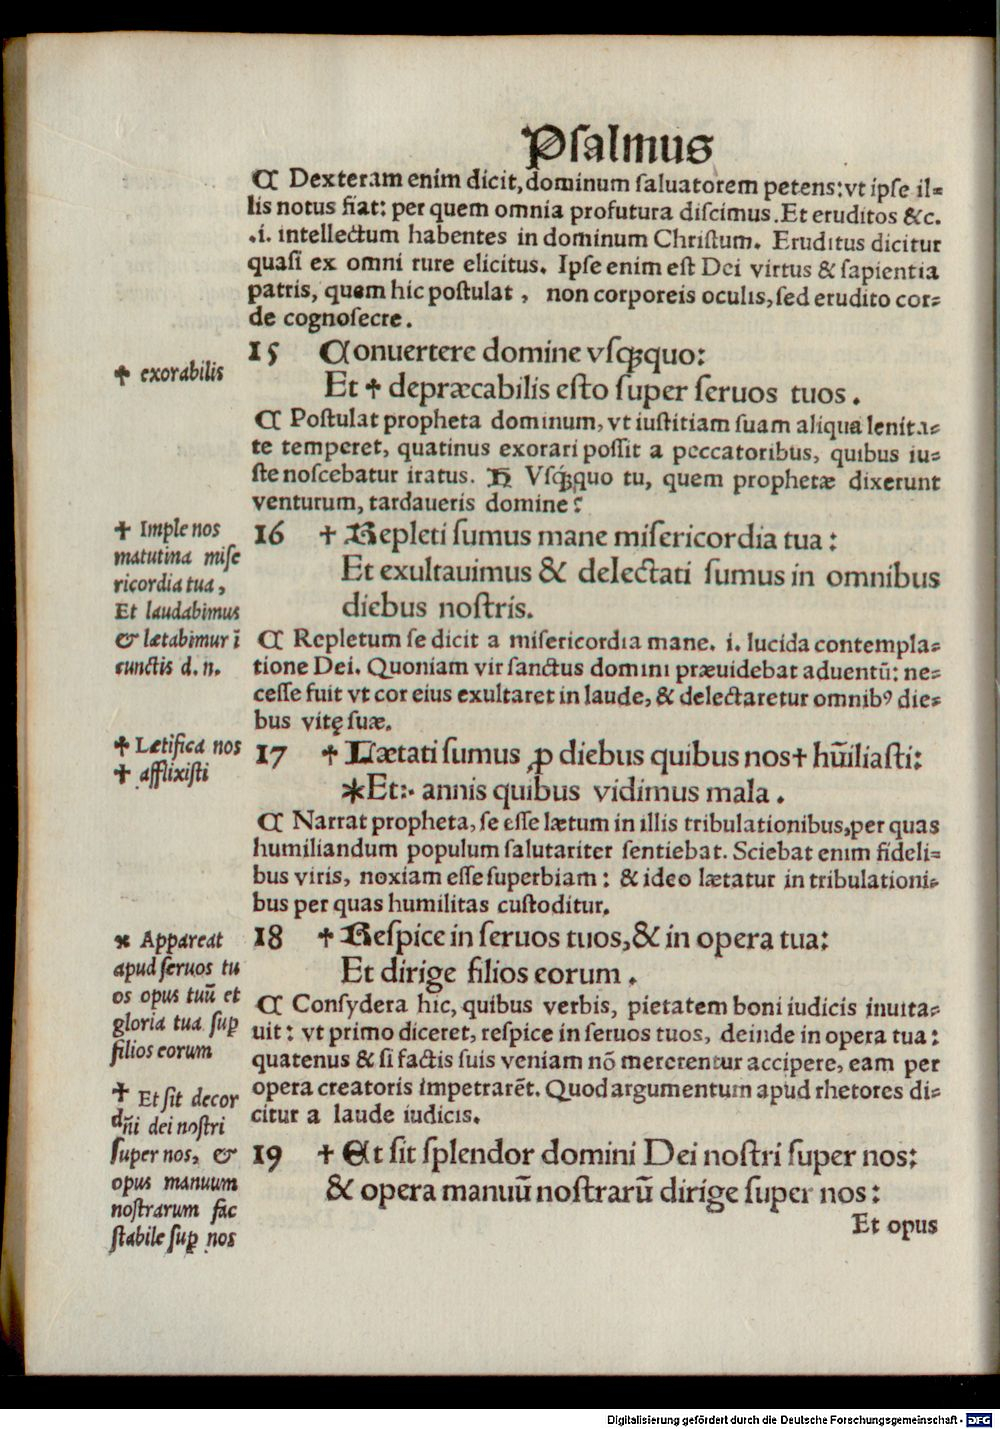 Psalmus
¶ Dexteram enim dicit, dominum ſaluatorem petens: vt ipſe il⸗
lis notus fiat: per quem omnia profutura diſcimus. Et eruditos &c.
.i. intellectum habentes in dominum Chriſtum. Eruditus dicitur
quaſi ex omni rure elicitus. Ipſe enim eſt Dei virtus & ſapientia
patris, quem hic poſtulat, non corporeis oculis, ſed erudito cor⸗
de cognoſecre.
15 Conuertere domine vſqꝫquo:
Et ✝ depræcabilis eſto ſuper ſeruos tuos.
✝ exorabilis
¶ Poſtulat propheta dominum, vt iuſtitiam ſuam aliqua lenita⸗
te temperet, quatinus exorari poſſit a peccatoribus, quibus iu⸗
ſte noſcebatur iratus. H Vſqꝫquo tu, quem prophetæ dixerunt
venturum, tardaueris domine?
16 ✝ Repleti ſumus mane miſericordia tua:
Et exultauimus & delectati ſumus in omnibus
diebus noſtris.
✝ Imple nos
matutina miſe
ricordia tua,
Et laudabimus
& lætabimur ī
cunctis d. n.
¶ Repletum ſe dicit a miſericordia mane. i. lucida contempla⸗
tione Dei. Quoniam vir ſanctus domini præuidebat aduentū: ne⸗
ceſſe fuit vt cor eius exultaret in laude, & delectaretur omnibꝰ die⸗
bus vitę ſuæ.
17 ✝ Lætati ſumus ꝓ diebus quibus nos✝ hūiliaſti:
*Et:· annis quibus vidimus mala.
✝ Lætifica nos
✝ afflixiſti
¶ Narrat propheta, ſe eſſe lætum in illis tribulationibus, per quas
humiliandum populum ſalutariter ſentiebat. Sciebat enim fideli⸗
bus viris, noxiam eſſe ſuperbiam: & ideo lætatur in tribulationi⸗
bus per quas humilitas cuſtoditur.
18 ✝ Reſpice in ſeruos tuos, & in opera tua:
Et dirige filios eorum.
* Appareat
apud ſeruos tu
os opus tuū et
gloria tua ſuꝑ
filios eorum
¶ Conſydera hic, quibus verbis, pietatem boni iudicis inuita⸗
uit: vt primo diceret, reſpice in ſeruos tuos, deinde in opera tua:
quatenus & ſi factis ſuis veniam nō mererentur accipere, eam per
opera creatoris impetrarēt. Quod argumentum apud rhetores di⸗
citur a laude iudicis.
19 ✝ Et ſit ſplendor domini Dei noſtri ſuper nos:
& opera manuū noſtrarū dirige ſuper nos:
✝ Et ſit decor
dn̄i dei noſtri
ſuper nos, &
opus manuum
noſtrarum fac
ſtabile ſuꝑ nos
Et opus
Digitalisierung gefördert durch die Deutsche Forschungsgemeinschaft - DFG